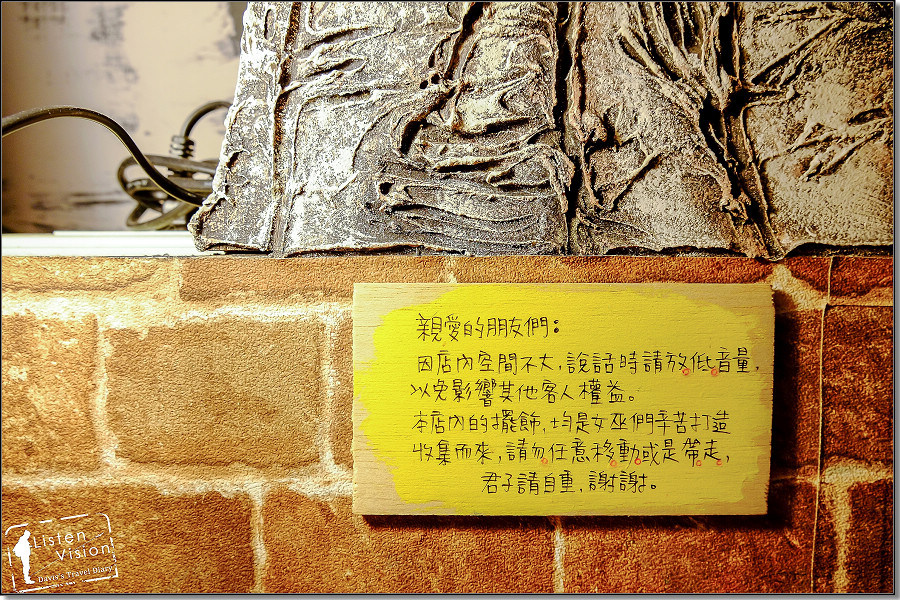 親愛的朋友們：
因店內空間不大，說話時請放低音量，
以免影響其他客人權益。
本店內的擺飾，均是女巫們辛苦打造
收集而來，請勿任意移動或是帶走，
君子請自重，謝謝。
Listen
Vision
Davis's Travel Diary